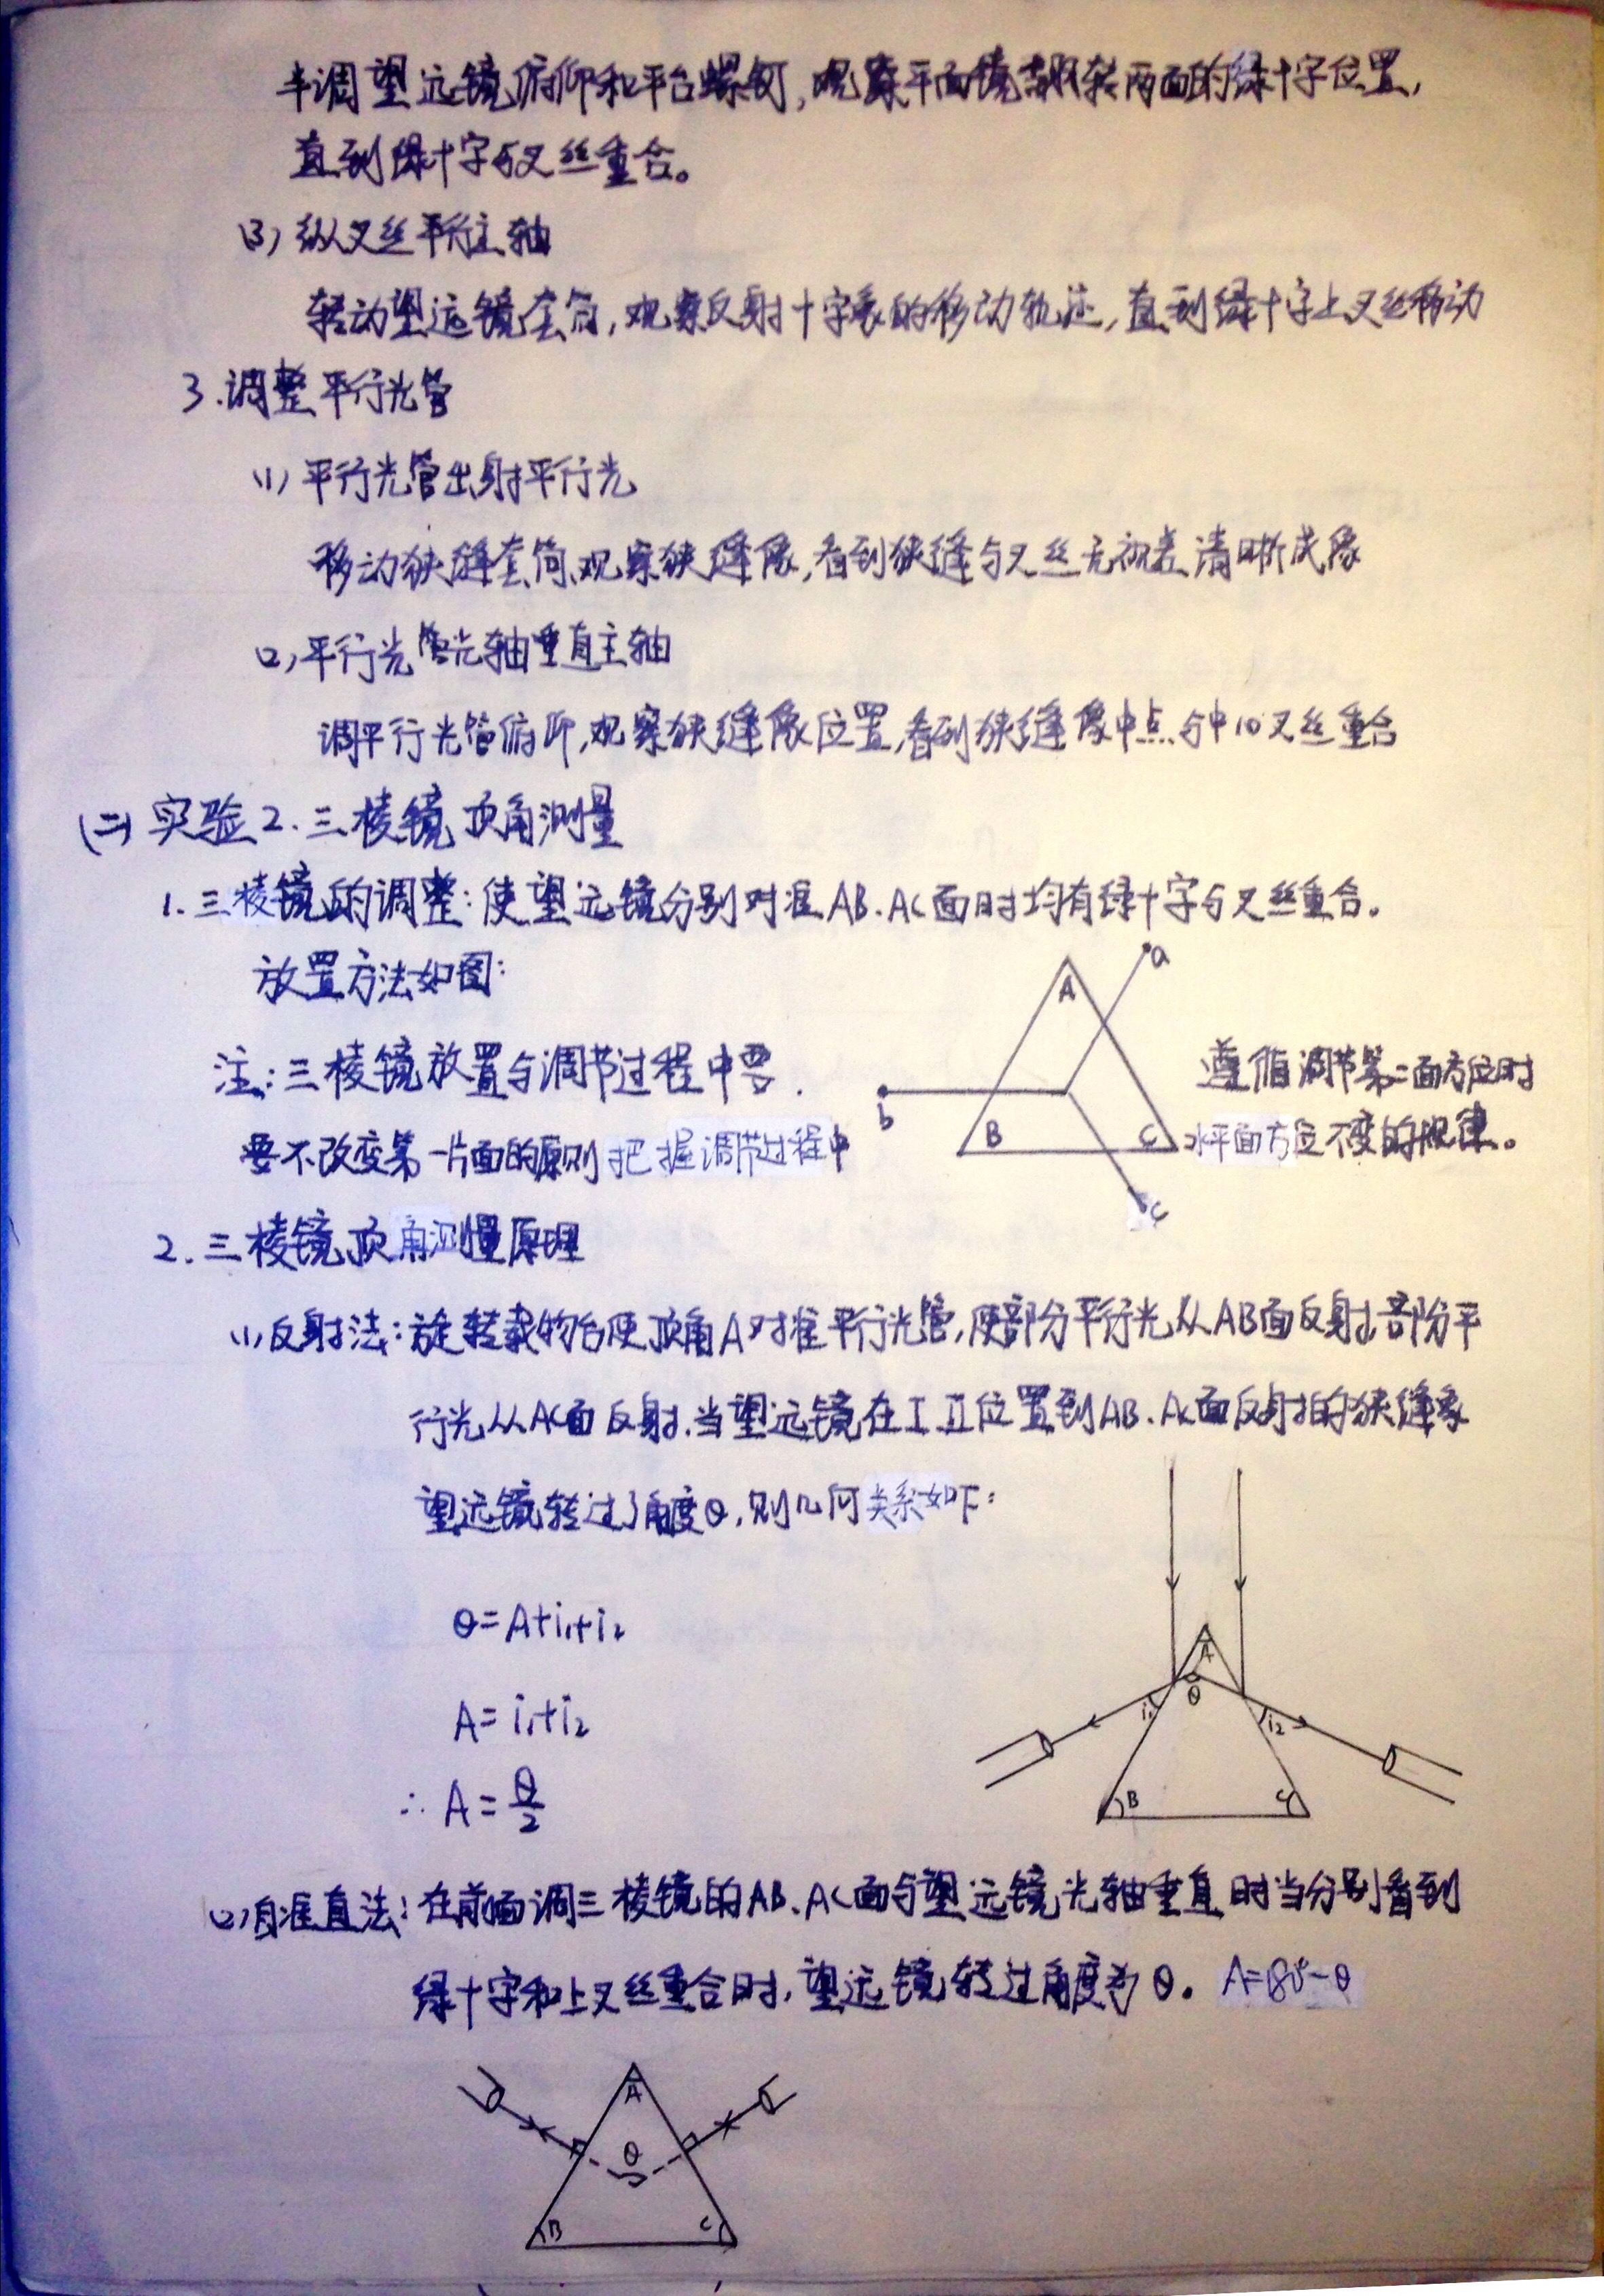 半调望远镜俯仰和平台螺钉,观察平面镜翻转两面的绿十字位置,
直到绿十字与叉丝重合。
(3) 纵叉丝平行主轴
转动望远镜套筒,观察反射十字象的移动轨迹,直到绿十字上叉丝移动
3.调整平行光管
(1) 平行光管出射平行光
移动狭缝套筒、观察狭缝像,看到狭缝与叉丝无视差清晰成像
(2)平行光管光轴垂直主轴
调平行光管俯仰,观察狭缝像位置,看到狭缝像中点与中心叉丝重合
(二)实验2.三棱镜顶角测量
1.三棱镜的调整:使望远镜分别对准AB.AC面时均有绿十字与叉丝重合。
放置方法如图:
A
a
b
B
C
c
注:三棱镜放置与调节过程中要.
遵循调节第二面方位时
要不改变第一片面的原则把握调节过程中
水平面方位不变的规律。
2.三棱镜顶角测量原理
(1)反射法:旋转载物台使顶角A对准平行光管,使部分平行光从AB面反射,部分平
行光从AC面反射.当望远镜在I.II位置到AB.AC面反射的狭缝象
望远镜转过了角度θ,则几何关系如下:
θ=A+i₁+i₂
A=i₁+i₂
∴A=θ/2
A
θ
i₁
i₂
B
C
(2)自准直法:在前面调三棱镜的AB.AC面与望远镜光轴垂直时当分别看到
绿十字和上叉丝重合时,望远镜转过角度为θ。A=180°-θ
A
θ
B
C